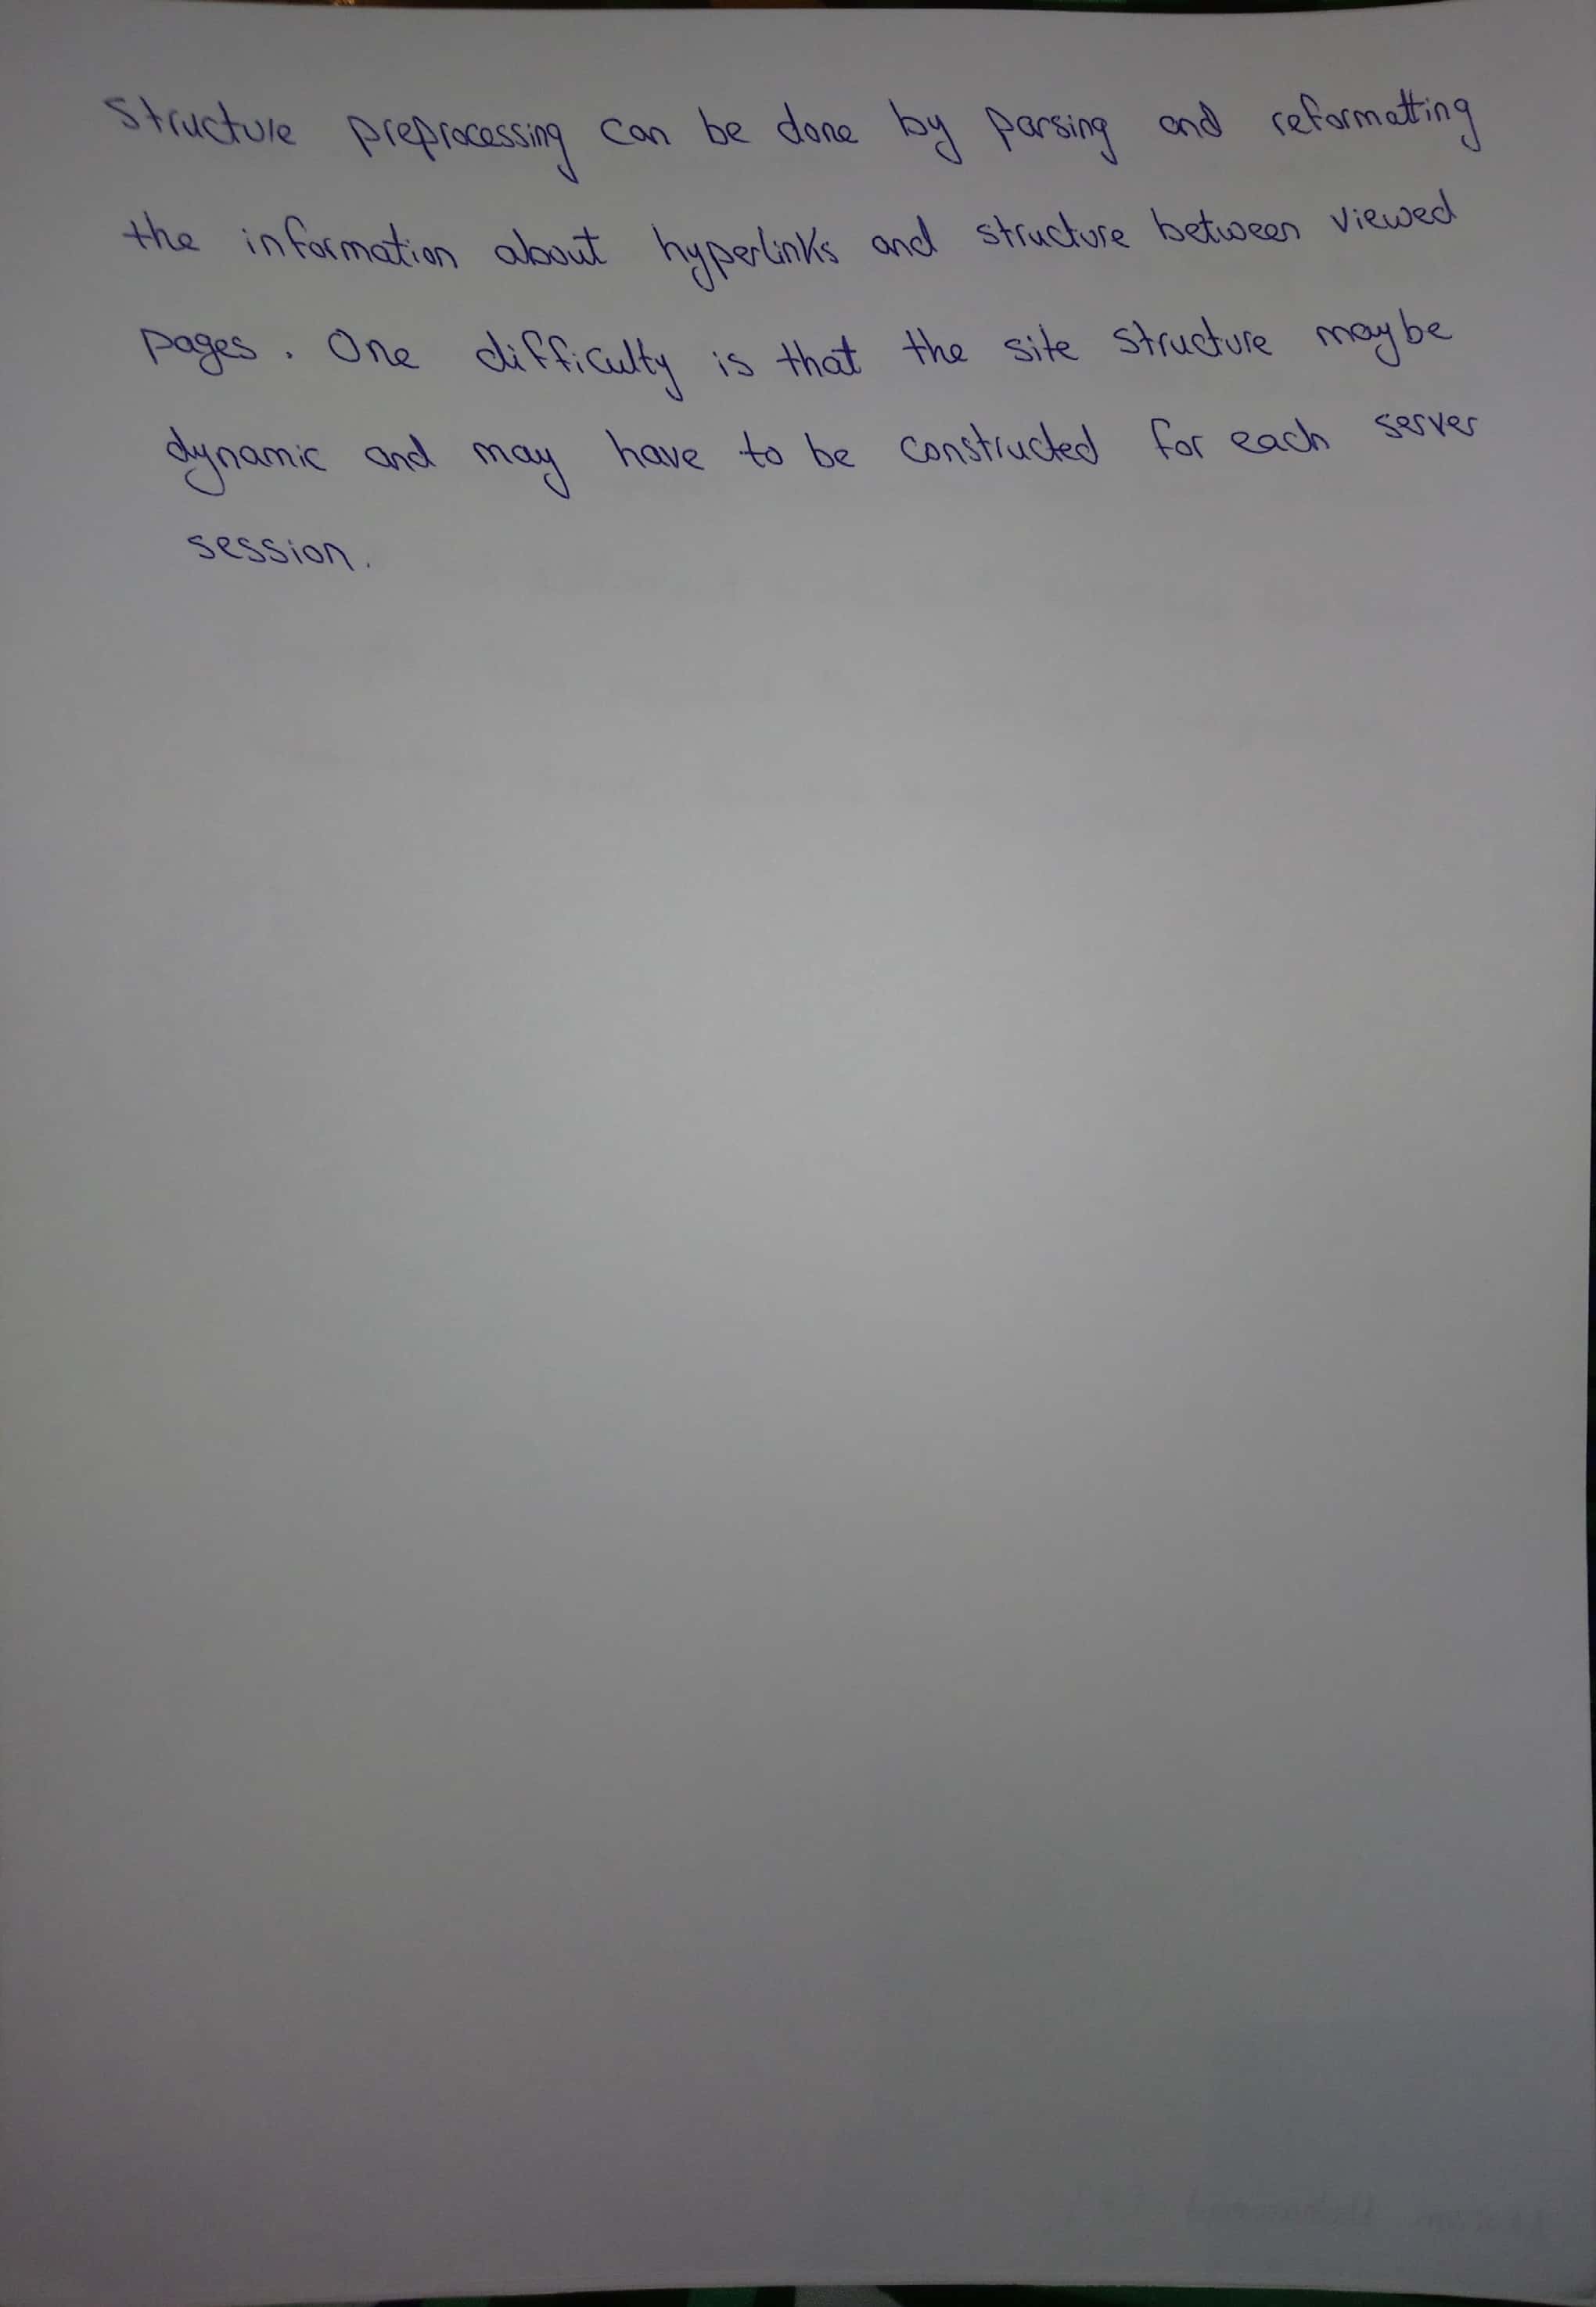 Structure preprocessing can be done by parsing and reformatting
the information about hyperlinks and structure between viewed
pages. One difficulty is that the site structure maybe
dynamic and may have to be constructed for each server
session.